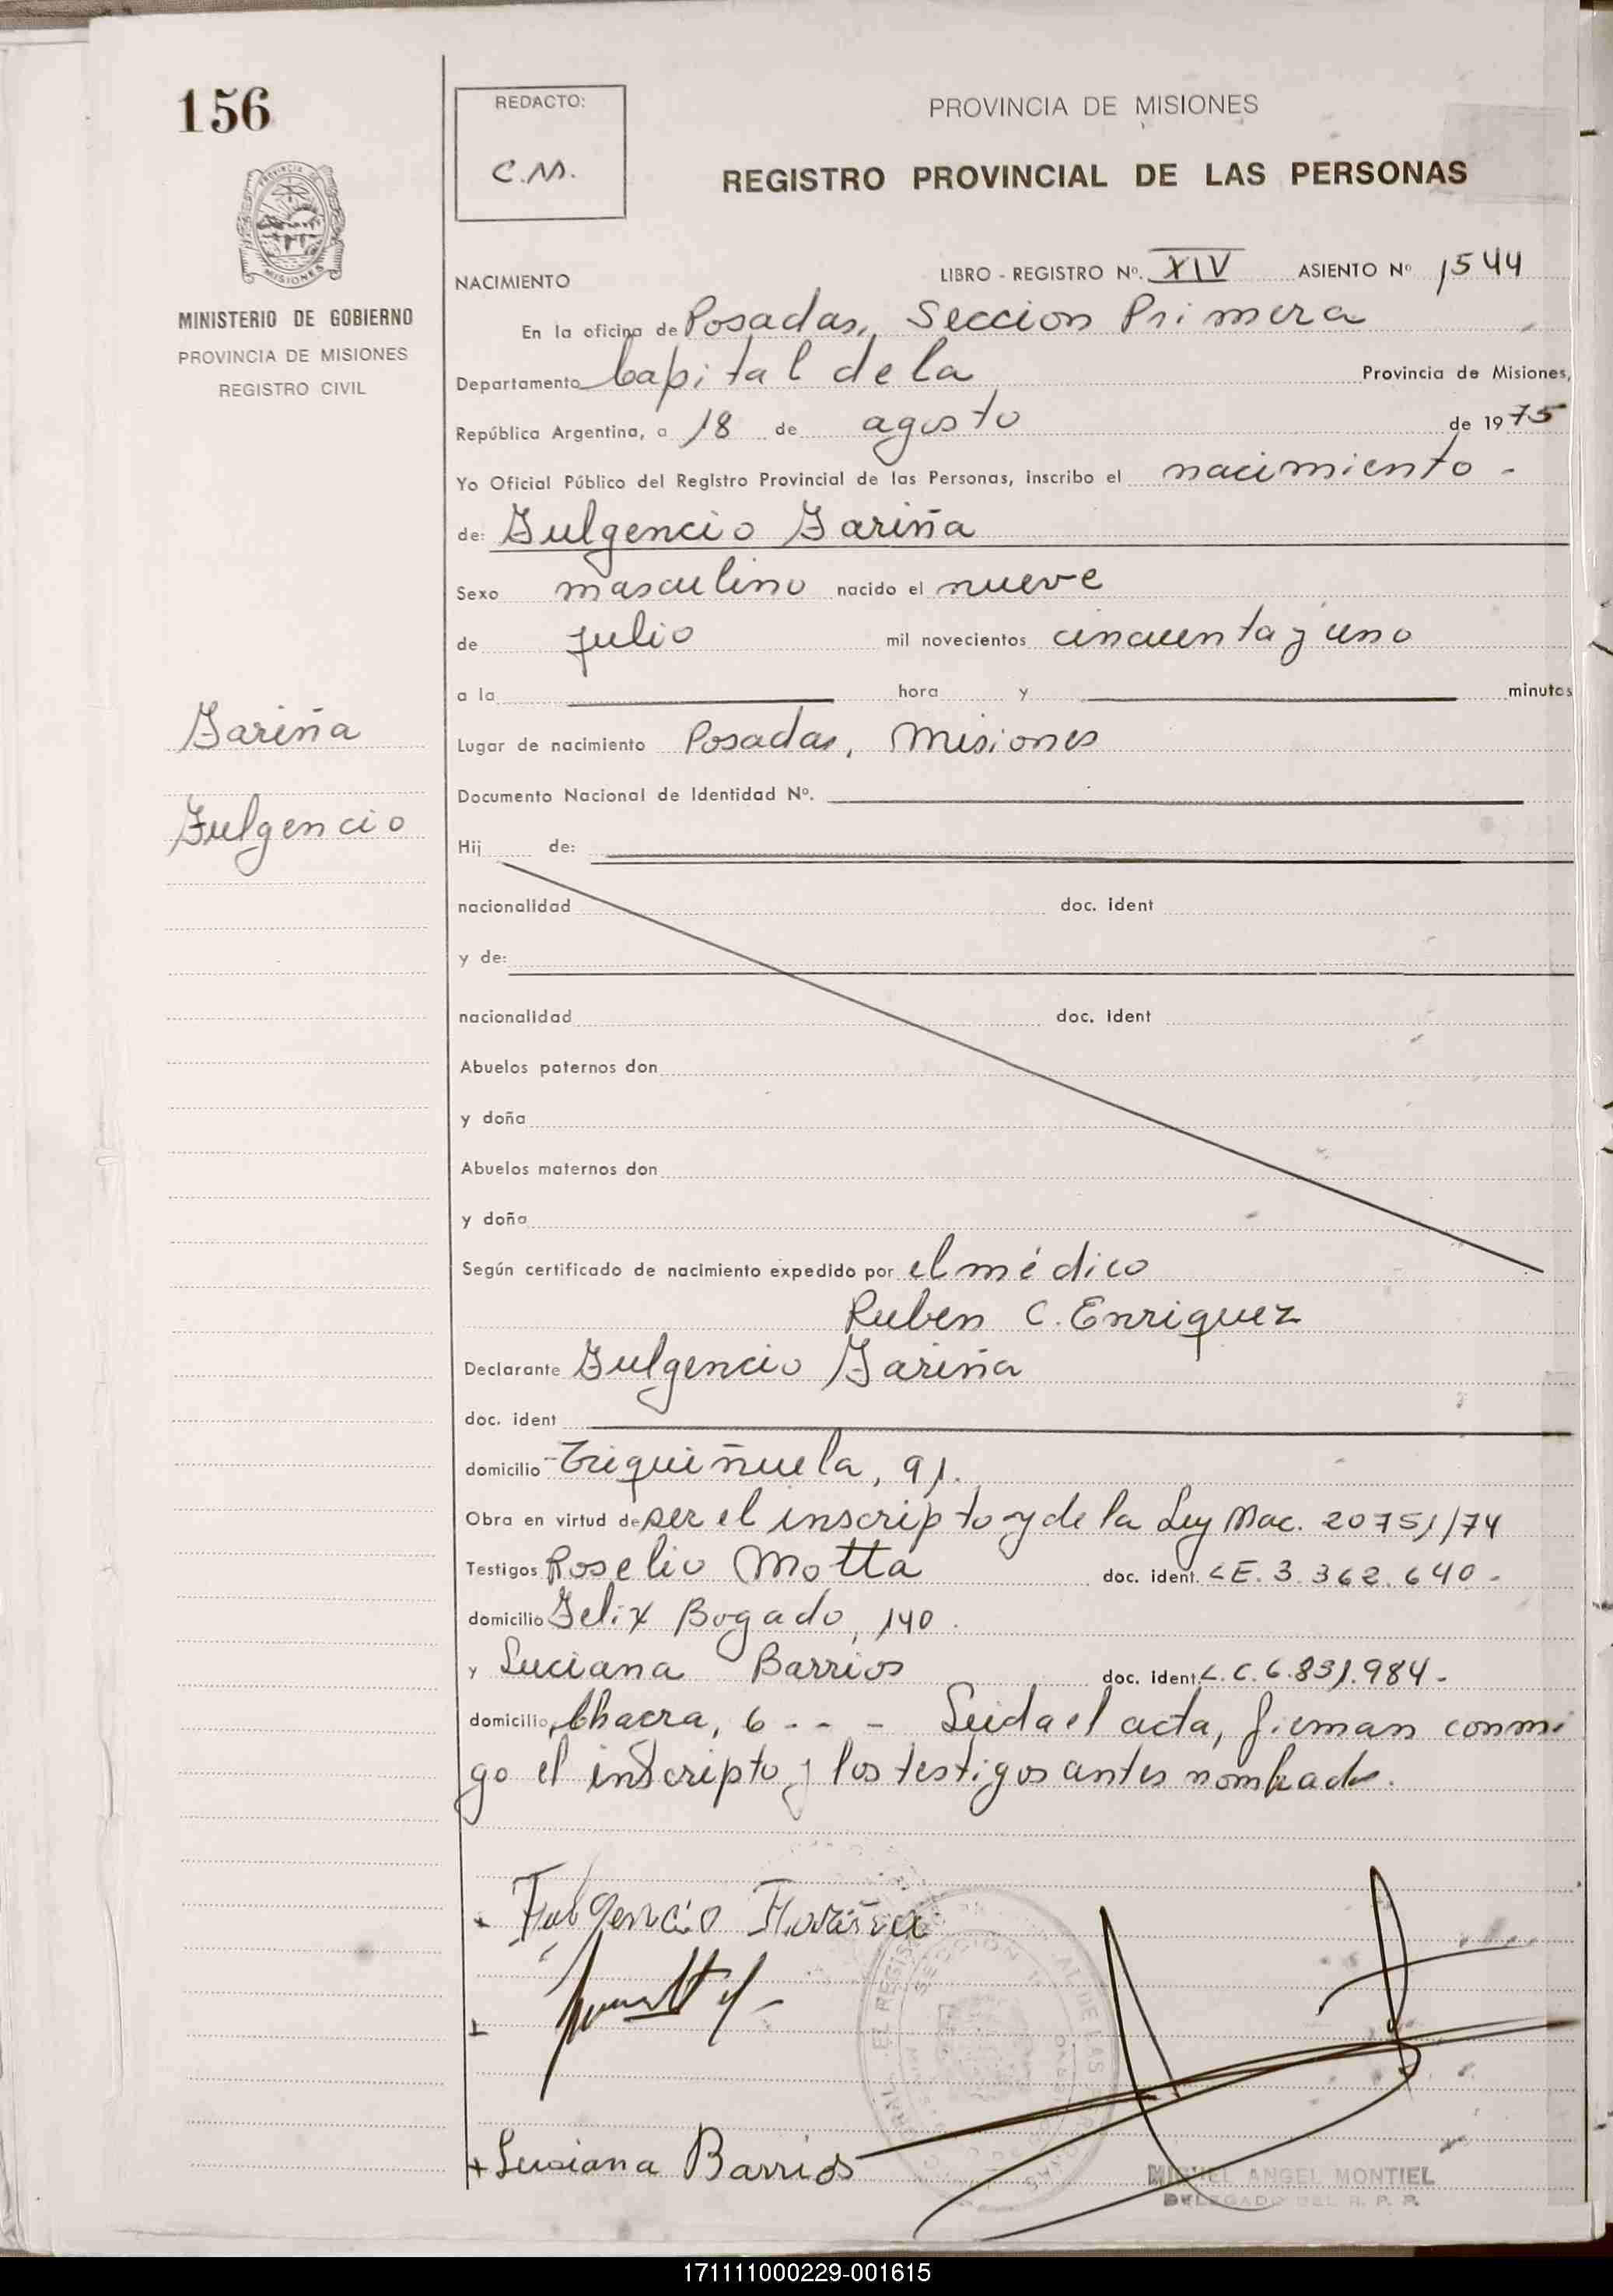 156
REDACTO:
C.M.
PROVINCIA DE MISIONES
REGISTRO PROVINCIAL DE LAS PERSONAS
MISIONES
MINISTERIO DE GOBIERNO
PROVINCIA DE MISIONES
REGISTRO CIVIL
NACIMIENTO LIBRO - REGISTRO Nº. XIV ASIENTO Nº 1544
En la oficina de Posadas, Seccion Primera
Departamento Capital de la Provincia de Misiones,
República Argentina, a 18 de agosto de 1975
Yo Oficial Público del Registro Provincial de las Personas, inscribo el nacimiento -
de: Fulgencio Fariña
Sexo masculino nacido el nueve
de julio mil novecientos cincuenta y uno
a la hora y minutos
Fariña
Lugar de nacimiento Posadas, Misiones
Documento Nacional de Identidad Nº.
Fulgencio
Hij de:
nacionalidad doc. ident
y de:
nacionalidad doc. ident
Abuelos paternos don
y doña
Abuelos maternos don
y doña
Según certificado de nacimiento expedido por el médico
Ruben C. Enriquez
Declarante Fulgencio Fariña
doc. ident
domicilio Triquiñuela, 91.
Obra en virtud de ser el inscripto y de la Ley Nac. 20751/74
Testigos Roselio Motta doc. ident. LE. 3.362.640-
domicilio Felix Bogado, 140.
y Luciana Barrios doc. ident. L.C. 6.831.984-
domicilio, Chacra, 6 - - - Leida el acta, firman conmi
go el inscripto y los testigos antes nombrados.
Fulgencio Fariña
+ Lusiana Barrios
MIGUEL ANGEL MONTIEL
DELEGADO DEL R. P. P.
171111000229-001615